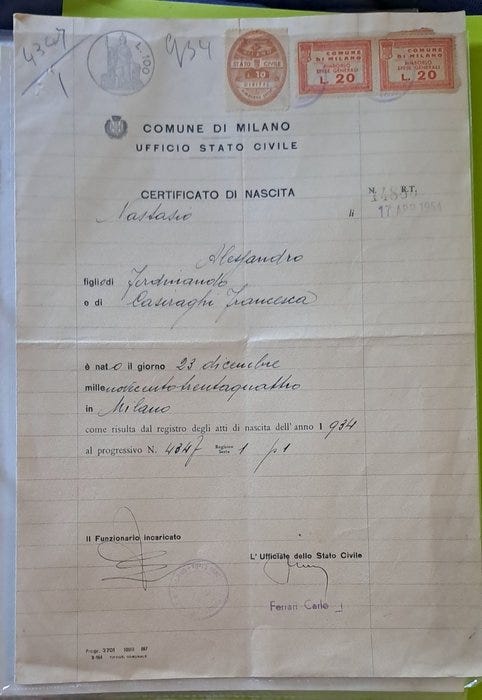 4347
1
934
L. 100
STATO CIVILE
L. 10
DIRITTI
COMUNE DI MILANO
RIMBORSO SPESE GENERALI
L. 20
COMUNE DI MILANO
RIMBORSO SPESE GENERALI
L. 20
COMUNE DI MILANO
UFFICIO STATO CIVILE
CERTIFICATO DI NASCITA
N. R.T.
Nastasio
li 17 APR 1954
Alessandro
figlio di Ferdinando
e di Caseraghi Francesca
è nato il giorno 23 dicembre
millenovecentotrentaquattro
in Milano
come risulta dal registro degli atti di nascita dell'anno 1934
al progressivo N. 4347 Registro Serie 1 p 1
Il Funzionario incaricato
L'Ufficiale dello Stato Civile
Ferrari Carlo